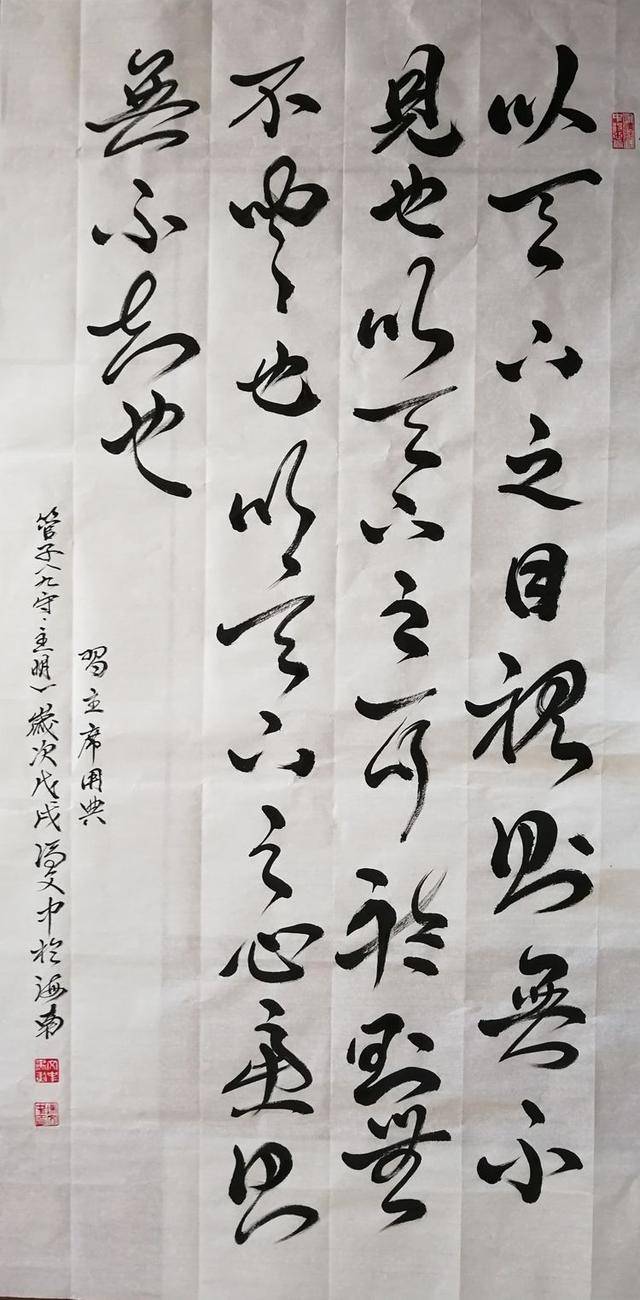 以天下之目視則無不
見也以天下之耳聽則無
不聞也以天下之心慮則
無不知也
習主席用典
管子〈九守·主明〉歲次戊戌馮文中於海南